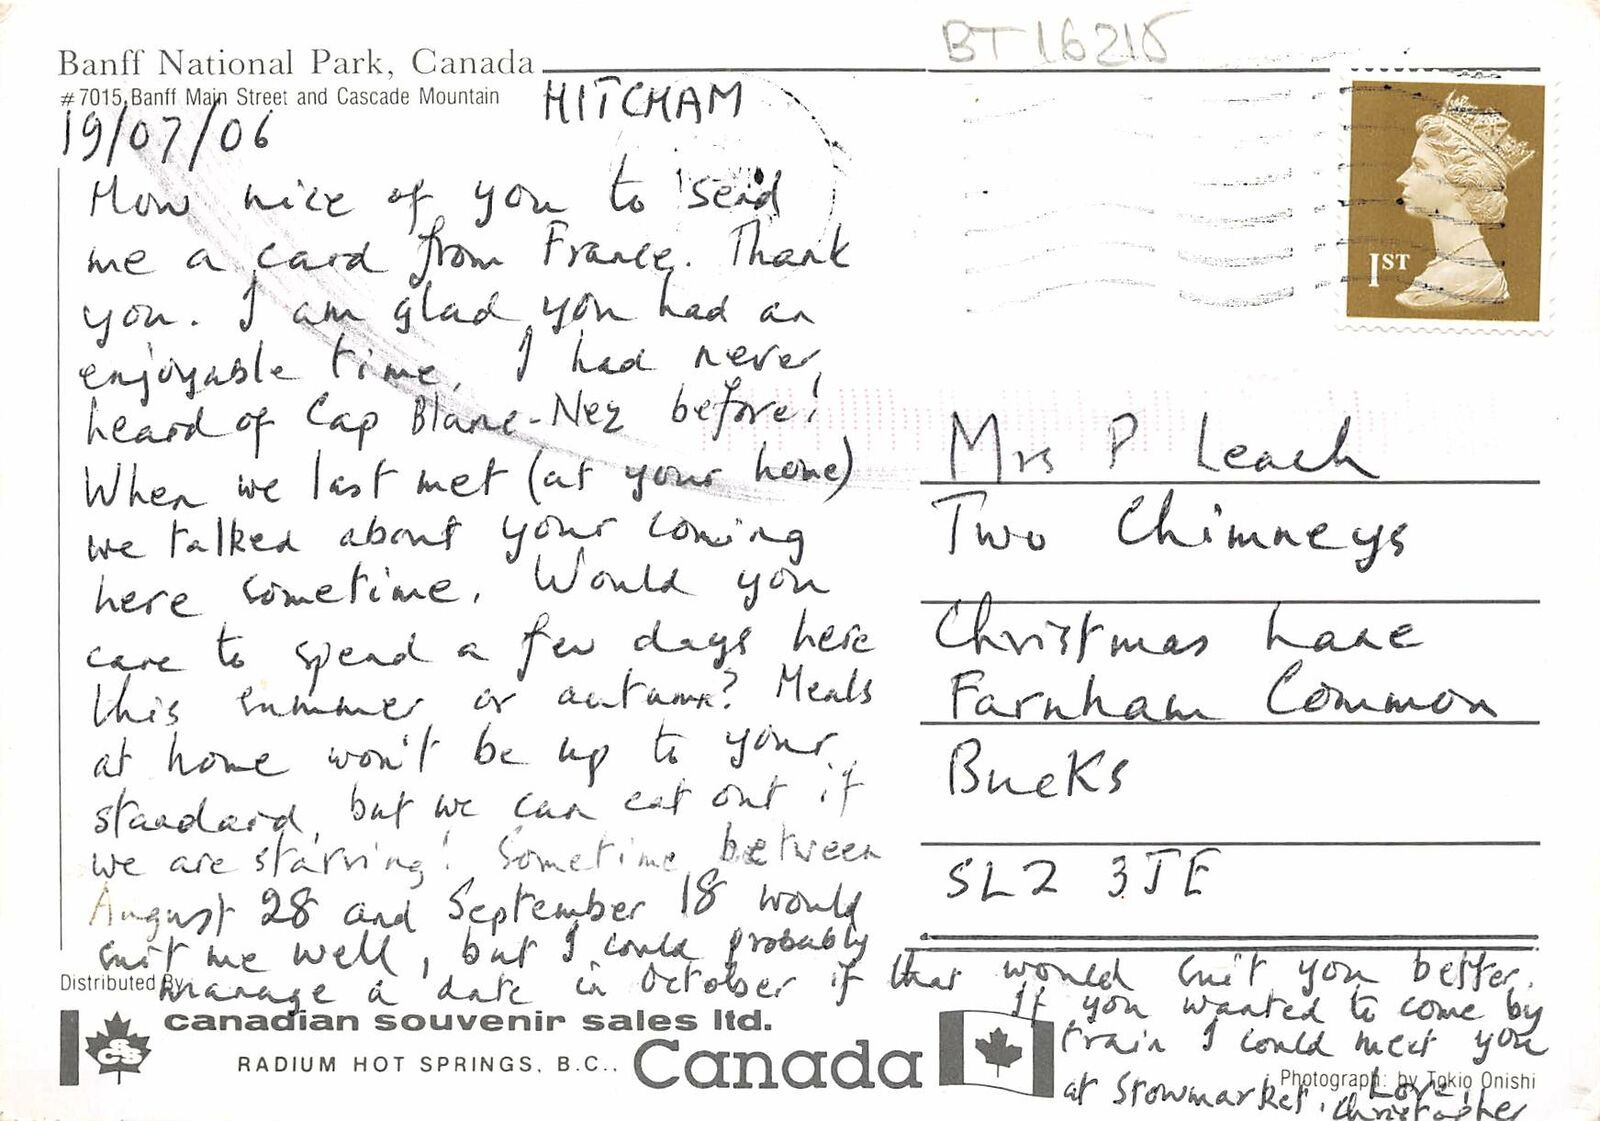 BT16215
Banff National Park, Canada
#7015 Banff Main Street and Cascade Mountain
HITCHAM
19/07/06
How nice of you to send
me a card from France. Thank
you. I am glad you had an
enjoyable time. I had never
heard of Cap Blanc-Nez before!
When we last met (at your home)
we talked about your coming
here sometime. Would you
care to spend a few days here
this summer or autumn? Meals
at home won't be up to your
standard, but we can eat out if
we are starving! Sometime between
August 28 and September 18 would
suit me well, but I could probably
manage a date in October if that would suit you better.
If you wanted to come by
train I could meet you
at Stowmarket.
Love,
Christopher
1ST
Mrs P Leach
Two Chimneys
Christmas Lane
Farnham Common
Bucks
SL2 3JE
Distributed By
SCS
canadian souvenir sales ltd.
RADIUM HOT SPRINGS, B.C..
Canada
Photograph: by Tokio Onishi